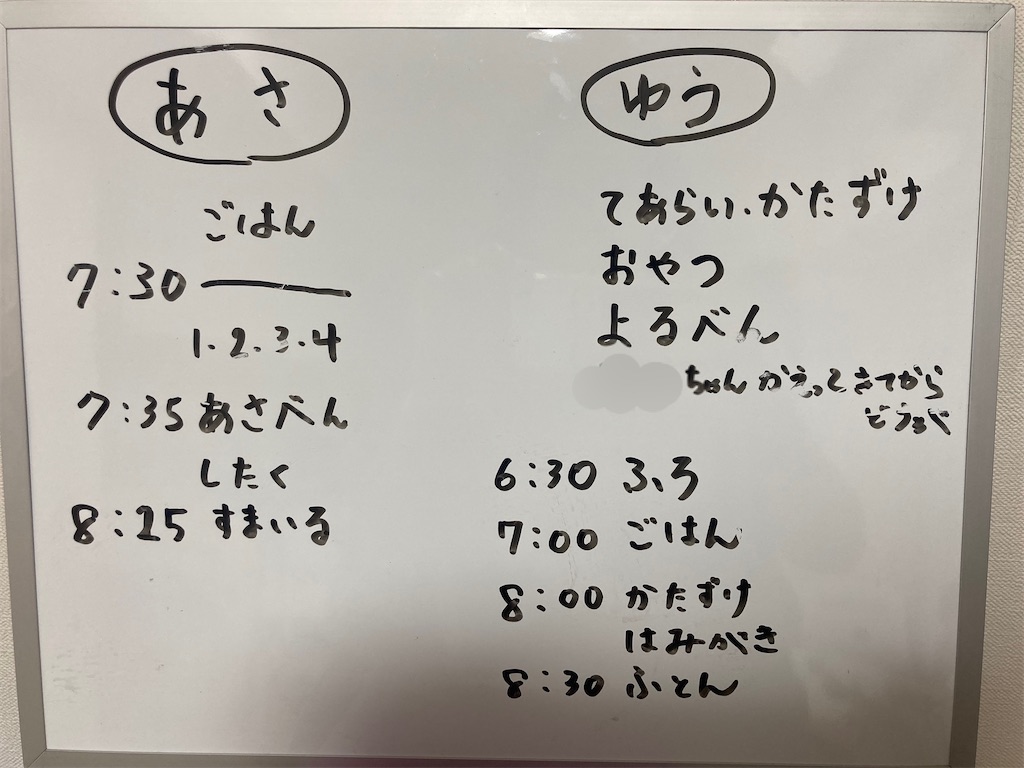 あさ
ごはん
7:30
1.2.3.4
7:35 あさべん
したく
8:25 すまいる
ゆう
てあらい.かたずけ
おやつ
よるべん
ちゃん かえってきてから
6:30 ふろ
7:00 ごはん
8:00 かたずけ
はみがき
8:30 ふとん